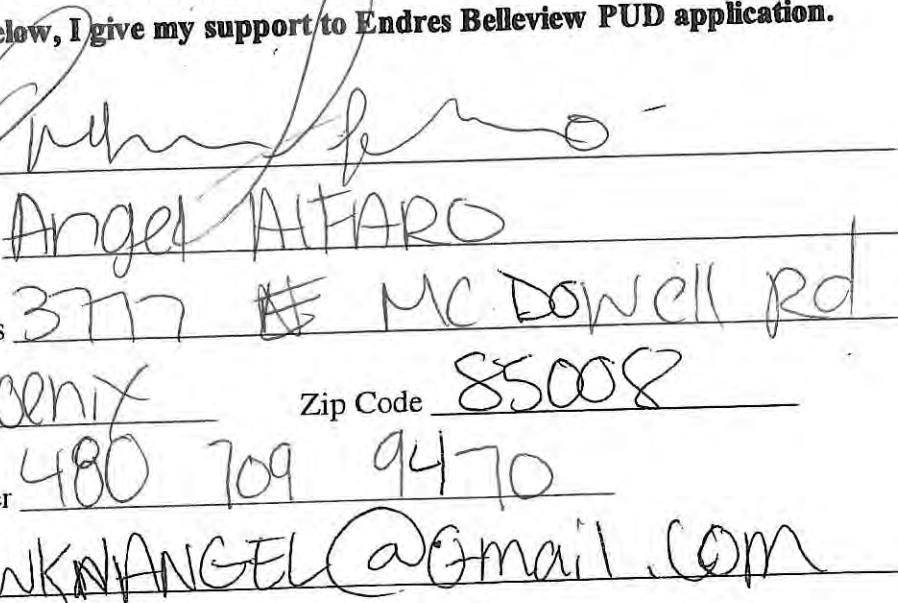 elow, I give my support to Endres Belleview PUD application.
Angel AlFARO
s 3777 E MC DOWell Rd
oenix Zip Code 85008
er 480 709 9470
NKNANGEL@Gmail.com